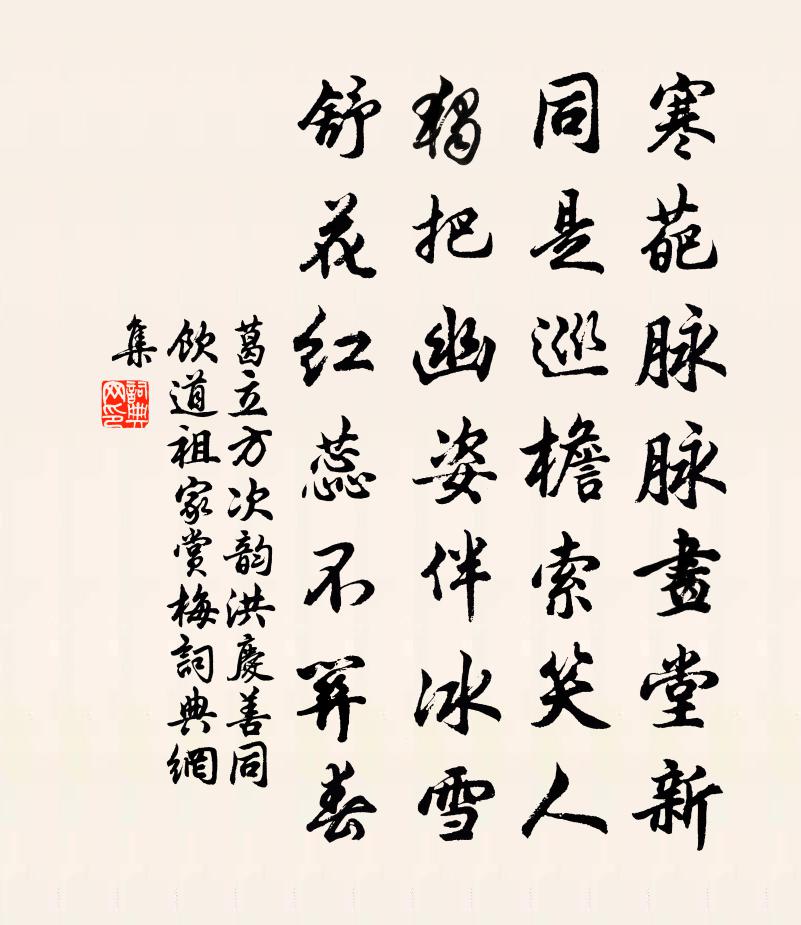 寒葩脉脉畫堂新
同是巡檐索笑人
獨把幽姿伴冰雪
舒花红蕊不春
葛立方次韵洪慶善同
飲道祖家賞梅詞典網
集
詞典
网印